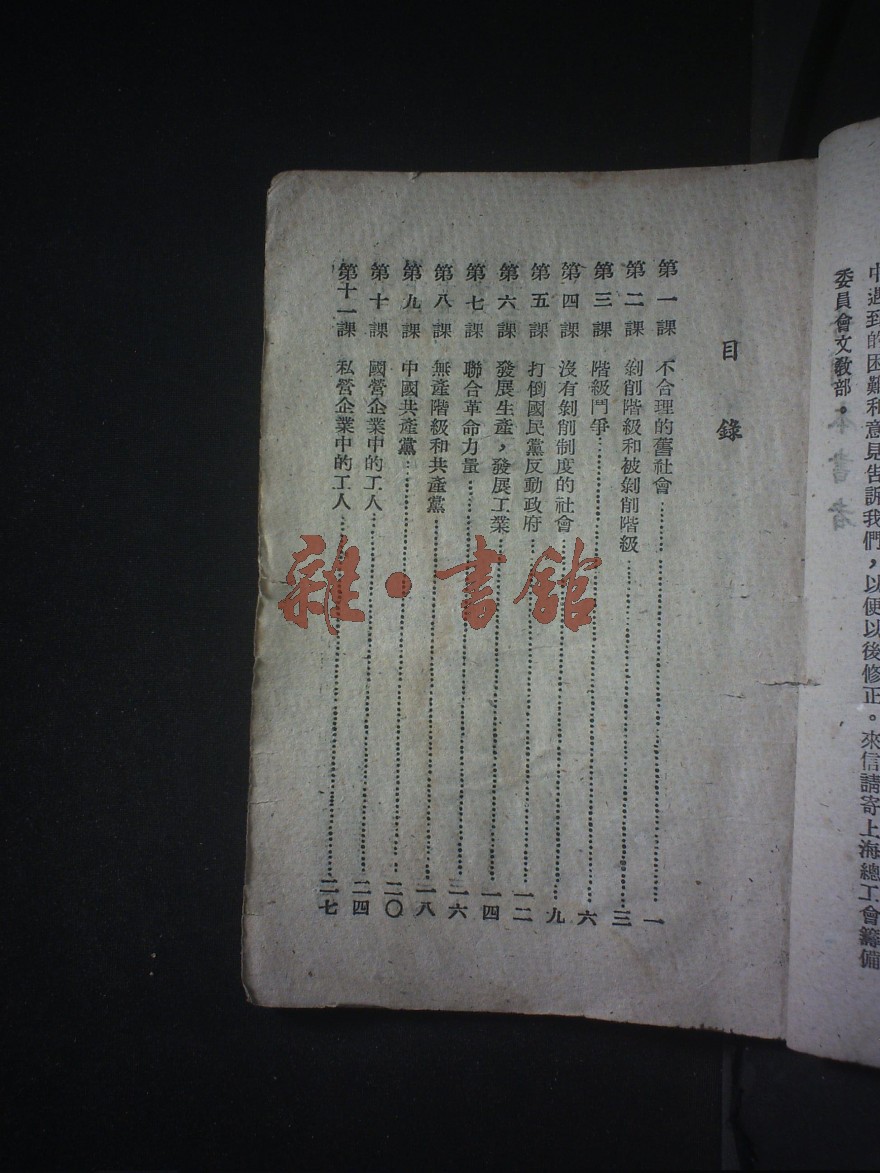 中遇到的困難和意見告訴我們，以便以後修正。來信請寄上海總工會籌備
委員會文教部。
目錄
第一課 不合理的舊社會……一
第二課 剝削階級和被剝削階級……三
第三課 階級鬥爭……六
第四課 沒有剝削制度的社會……九
第五課 打倒國民黨反動政府……一二
第六課 發展生產，發展工業……一四
第七課 聯合革命力量……一六
第八課 無產階級和共產黨……一八
第九課 中國共產黨……二〇
第十課 國營企業中的工人……二四
第十一課 私營企業中的工人……二七
雜·書館